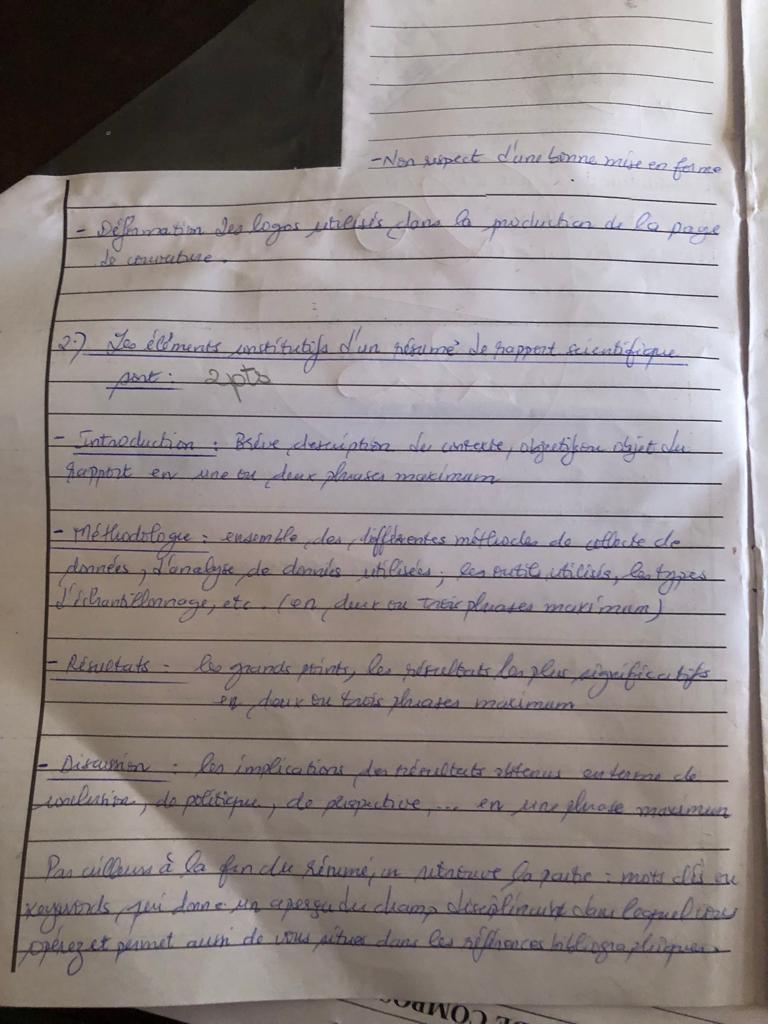 - Non respect d'une bonne mise en forme
- Déformation des logos utilisés dans la production de la page
de couverture.
2-) Les éléments institutifs d'un résumé de rapport scientifique
sont : 2pts
- Introduction : Brève description du contexte, objectif ou objet du
rapport en une ou deux phrases maximum
- Méthodologie : ensemble des différentes méthodes de collecte de
données, d'analyse de données utilisées, les outils utilisés, les types
d'échantillonnage, etc. (en deux ou trois phrases maximum)
- Résultats : les grands points, les résultats les plus significatifs
en deux ou trois phrases maximum
- Discussion : les implications des résultats obtenus en terme de
conclusion, de politique, de perspective, ... en une phrase maximum
Par ailleurs à la fin du résumé, on retrouve la partie : mots clés ou
keywords, qui donne un aperçu du champ disciplinaire dans lequel vous
opérez et permet aussi de vous situer dans les références bibliographiques.
DE COMPOS